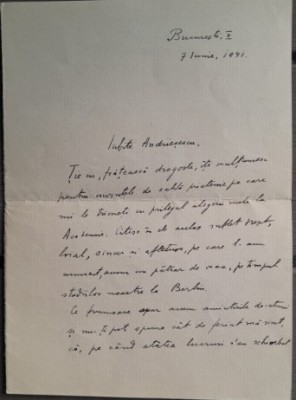 București, I
7 Iunie, 1941.
Iubite Andriesescu,
Ție cu, frățească dragoste, îți mulțumesc
pentru cuvintele de caldă prietenie pe care
mi le trimeți cu prilejul alegerii mele la
Academie. Citesc în ele acelaș suflet drept,
loial, sincer și afectuos, pe care l-am
cunoscut, acum un pătrar de veac, pe timpul
studiilor noastre la Berlin.
Ce frumoase apar acum amintirile de atunci
și nu-ți pot spune cât de
că, pe când atâtea lucruri s'au schimbat